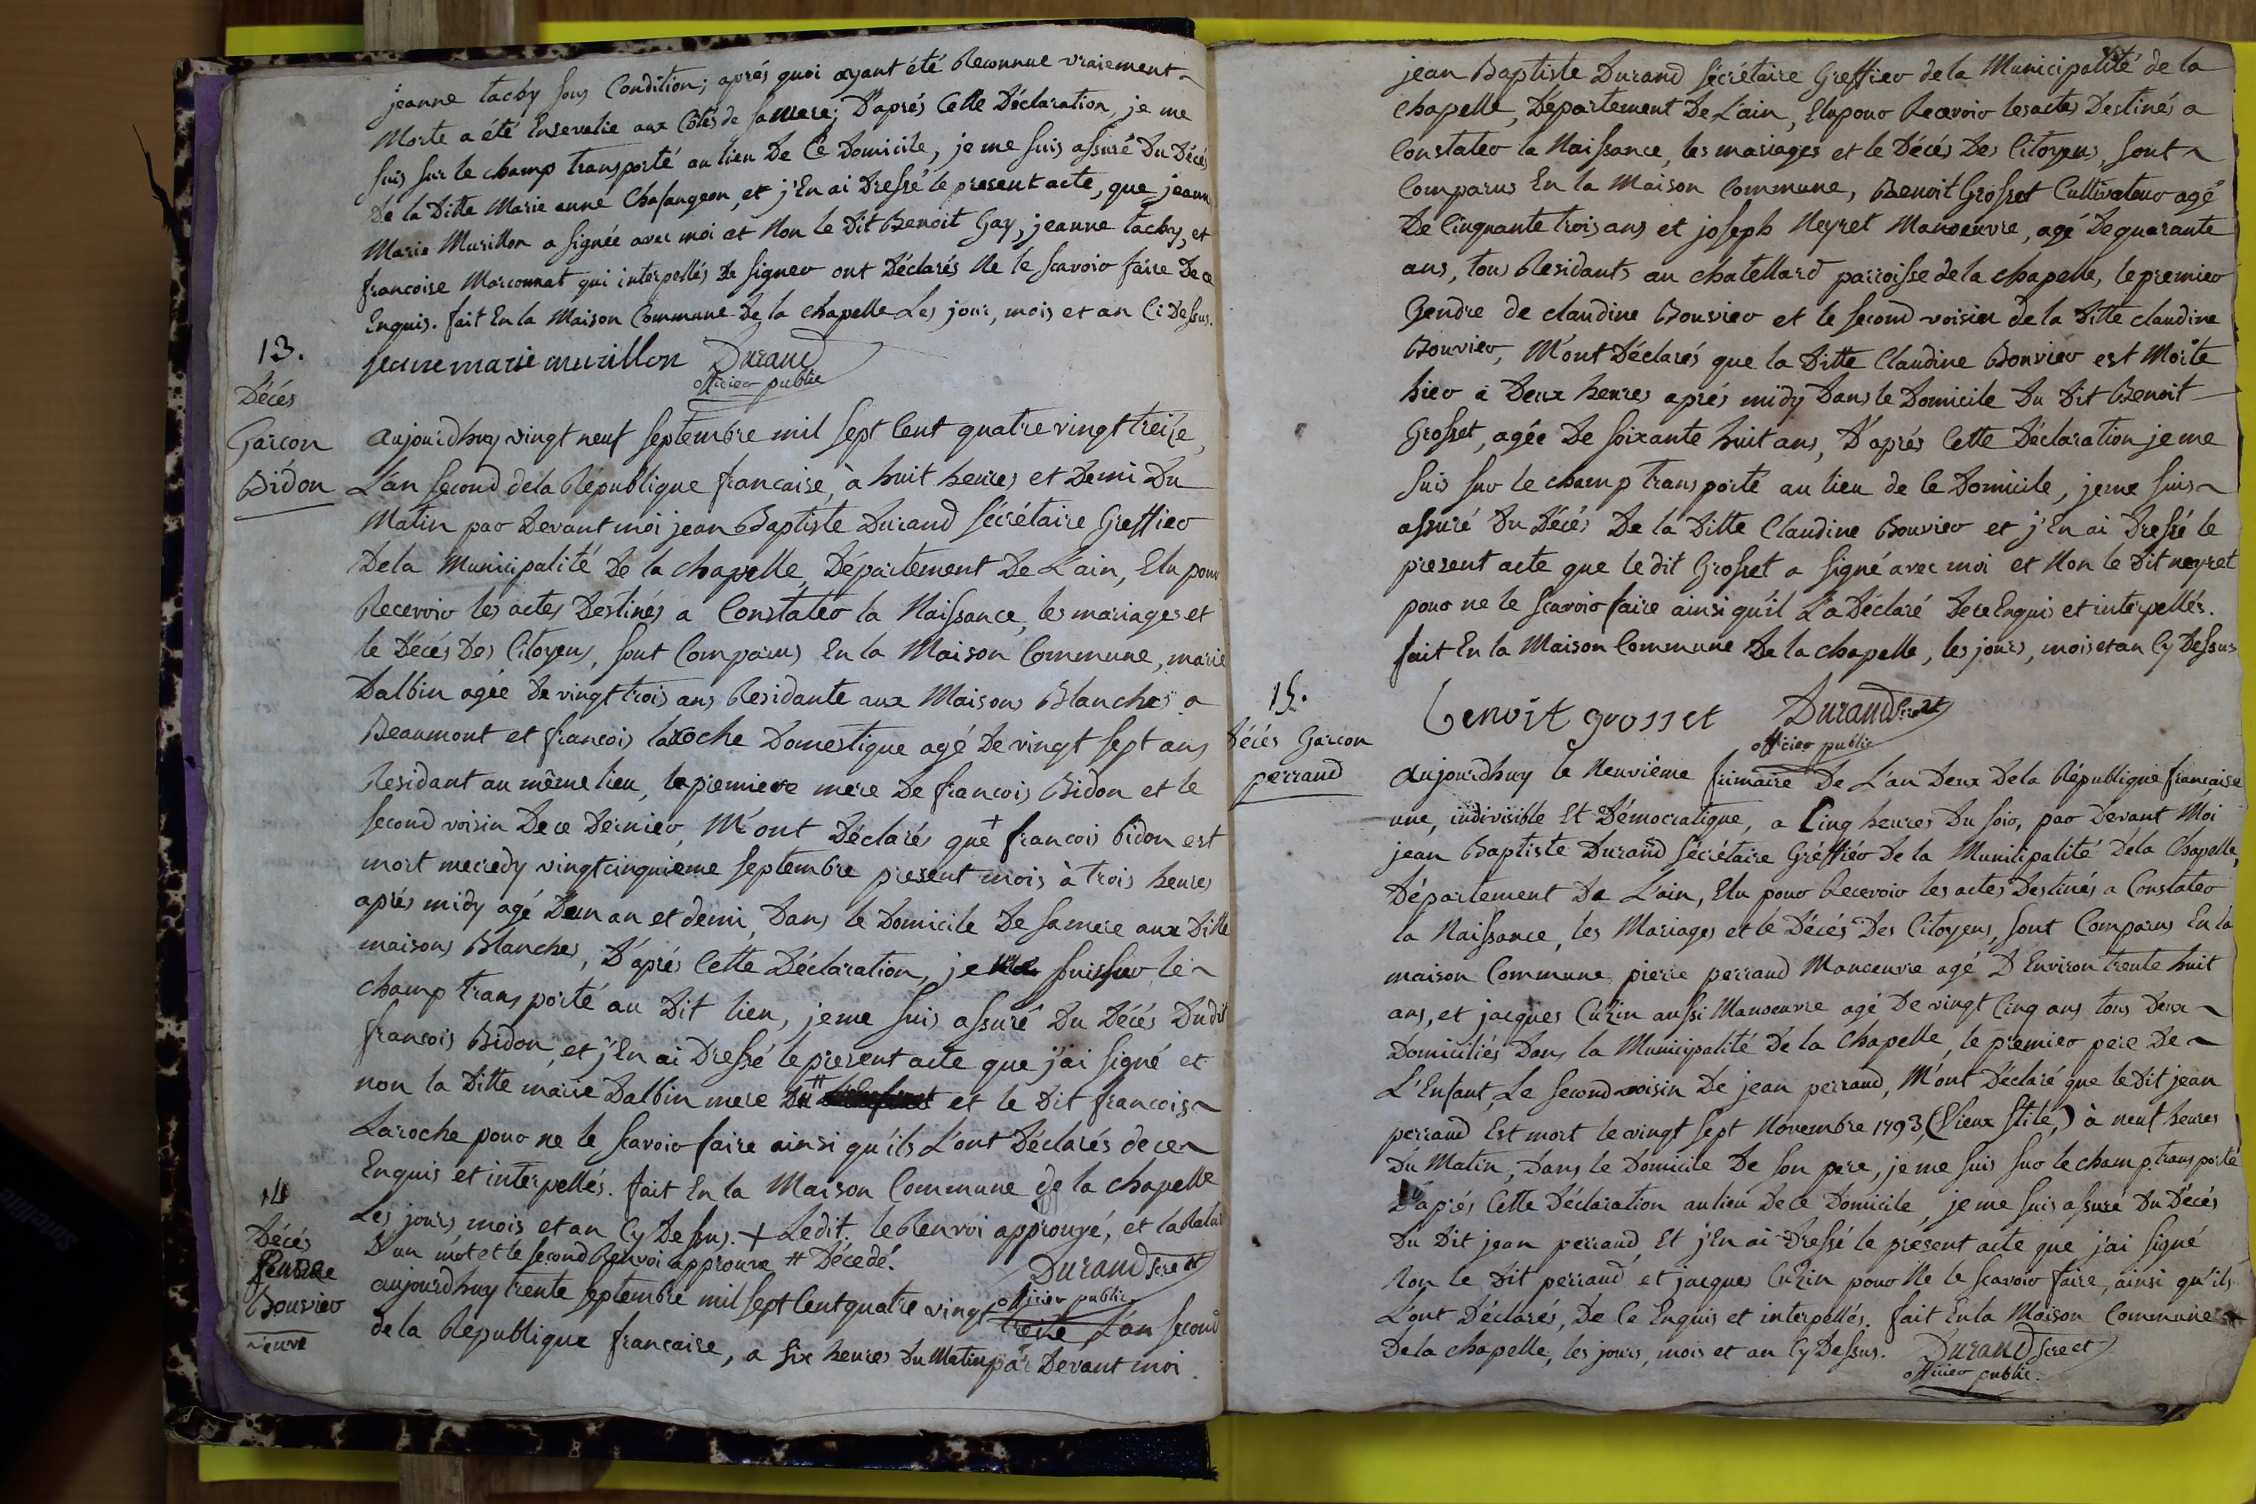 jeanne tachy sous Condition; aprés quoi ayant été Reconnue vraiement
Morte a été Ensevelie aux Cotés de sa mere; D'aprés Cette Déclaration, je me
suis sur le champ transporté au lieu De Ce Domicile, je me suis assuré Du Décés
De la Ditte Marie anne Chasangeon, et j'En ai Dressé le present acte, que jeann
Marie Murillon a signée avec moi et Non le Dit Benoit Gay, jeanne tachy, et
francoise Marconnat qui interpellés De signer ont Déclarés Ne le scavoir faire De ce
Enquis. fait En la Maison Commune De la chapelle Les jour, mois et an Ci Dessus.
jeanne marie murillon Durand
officier public
13.
Décés
Garcon
Bidon
aujourdhuy vingt neuf septembre mil sept Cent quatre vingt treize,
L'an second de la République francaise, à huit heures et Demi Du
Matin par Devant moi jean Baptiste Durand sécrétaire Greffier
De la Municipalité De la chapelle, Département De L'ain, Elu pour
Recevoir les actes Destinés a Constater la Naissance, les mariages et
le Décés Des Citoyens, sont Comparus En la Maison Commune, marie
Dalbin agée De vingt trois ans Residante aux Maisons Blanches a
Beaumont et francois laroche Domestique agé De vingt sept ans
Residant au même lieu, la premiere mere De francois Bidon et le
second voisin De ce Dernier, M'ont Déclarés que + francois Bidon est
mort mecredy vingtcinquieme septembre present mois à trois heures
aprés midy agé D'un an et demi, Dans le Domicile De sa mere aux Ditte
maisons Blanches, D'aprés Cette Déclaration, je me suis sur le
champ transporté au Dit lieu, je me suis assuré Du Décés Du dit
francois Bidon, et j'En ai Dressé le present acte que j'ai signé et
non la Ditte marie Dalbin mere Du # et le Dit francois
Laroche pour ne le scavoir faire ainsi qu'ils L'ont Déclarés de ce
Enquis et interpellés. fait En la Maison Commune de la chapelle
Les jours, mois et an Cy Dessus. + Ledit. le Renvoi approuvé, et la Ratur
D'un mot et le second Renvoi approuvé # Décedé.
Durand scre et
officier public
14
Décés
femme
Bouvier
veuve
aujourdhuy trente septembre mil sept Cent quatre vingt treize, L'an second
de la Republique francaise, a six heures Du Matin par Devant moi
jean Baptiste Durand sécrétaire Greffier de la Municipalité de la
chapelle, Département De L'ain, Elu pour Recevoir les actes Destinés a
Constater la Naissance, les mariages et le Décés Des Citoyens, sont
Comparus En la Maison Commune, Benoit Grosset Cultivateur agé
De Cinquante trois ans et joseph Neyret Manoeuvre, agé De quarante
ans, tous Residants au chatellard parroisse de la chapelle, le premier
Gendre de claudine Bouvier et le second voisin de la Ditte claudine
Bouvier, M'ont Déclarés que la Ditte Claudine Bouvier est Morte
hier a Deux heures aprés midy Dans le Domicile Du Dit Benoit
Grosset, agée De soixante huit ans, D'aprés Cette Déclaration je me
suis sur le champ transporté au lieu de Ce Domicile, je me suis
assuré Du Décés De la Ditte Claudine Bouvier et j'En ai Dressé le
present acte que le dit Grosset a signé avec moi et Non le Dit neyret
pour ne le scavoir faire ainsi qu'il L'a Déclaré De ce Enquis et interpellés.
fait En la Maison Commune De la chapelle, les jours, mois et an Cy Dessus
benoit grosset Durand scre et
officier public
15.
Décés Garcon
perraud
aujourdhuy le Neuvième frimaire De L'an Deux De la République francaise
une, indivisible Et Démocratique, a Cinq heures Du soir, par Devant Moi
jean Baptiste Durand sécrétaire Gréffiér De la Municipalité De la Chapelle,
Département De L'ain, Elu pour Recevoir les actes Destinés a Constater
la Naissance, les Mariages et le Décés Des Citoyens, sont Comparus En la
maison Commune pierre perraud Manoeuvre agé D'Environ trente huit
ans, et jacques Cuzin aussi Manoeuvre agé De vingt Cinq ans tous Deux
Domiciliés Dans la Municipalité De la Chapelle, le premier pere De
L'Enfant, Le second voisin De jean perraud, M'ont Déclaré que le Dit jean
perraud Est mort le vingt sept Novembre 1793, (Vieux Stile,) à neuf heures
Du Matin, Dans le Domicile De son pere, je me suis sur le champ transporté
D'aprés Cette Déclaration au lieu De ce Domicile, je me suis assuré Du Décés
Du Dit jean perraud, Et j'En ai Dressé le présent acte que j'ai signé
Non le Dit perraud et jacques Cuzin pour Ne le scavoir faire, ainsi qu'ils
L'ont Déclarés, De Ce Enquis et interpellés. fait En la Maison Commune
De la chapelle, les jours, mois et an Cy Dessus. Durand scre et
officier public.